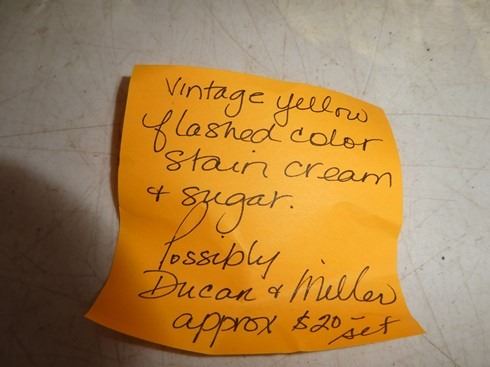 Vintage yellow
flashed color
stain cream
& sugar.
Possibly
Ducan & Miller
approx $20- set